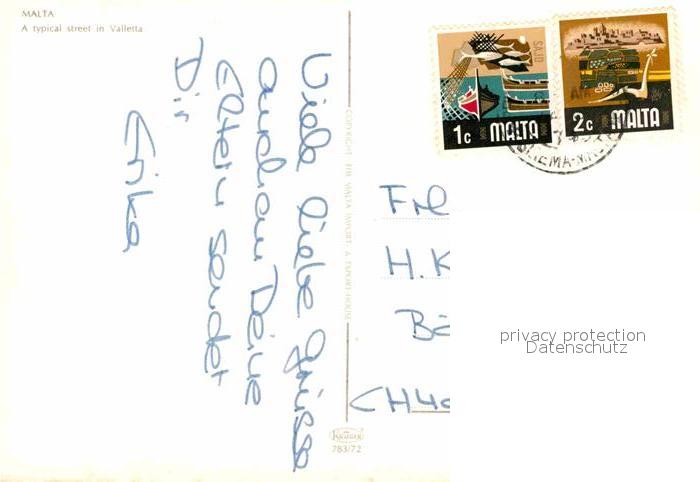 MALTA
A typical street in Valletta
Viele liebe Grüsse
auch an Deine
Eltern sendet
Dir
Erika
COPYRIGHT THE MALTA IMPORT & EXPORT HOUSE
KRÜGER
783/72
SAJD
1c MALTA
2c MALTA
SLIEMA-MALTA
Frl
H. K
Bä
CH 40
privacy protection
Datenschutz